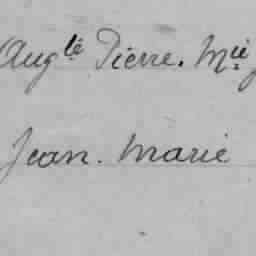 Aug.té Pierre. M.ie
Jean. Marie